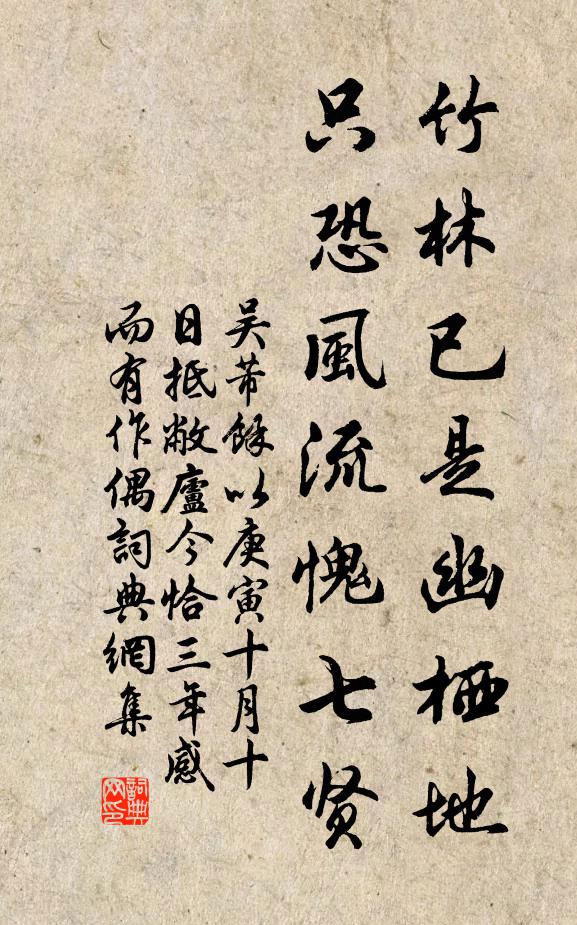 竹林已是幽栖地
只恐風流愧七贤
吴芾餘以庚寅十月十
日抵敝廬今恰三年感
而有作偶詞典網集
詞典网印